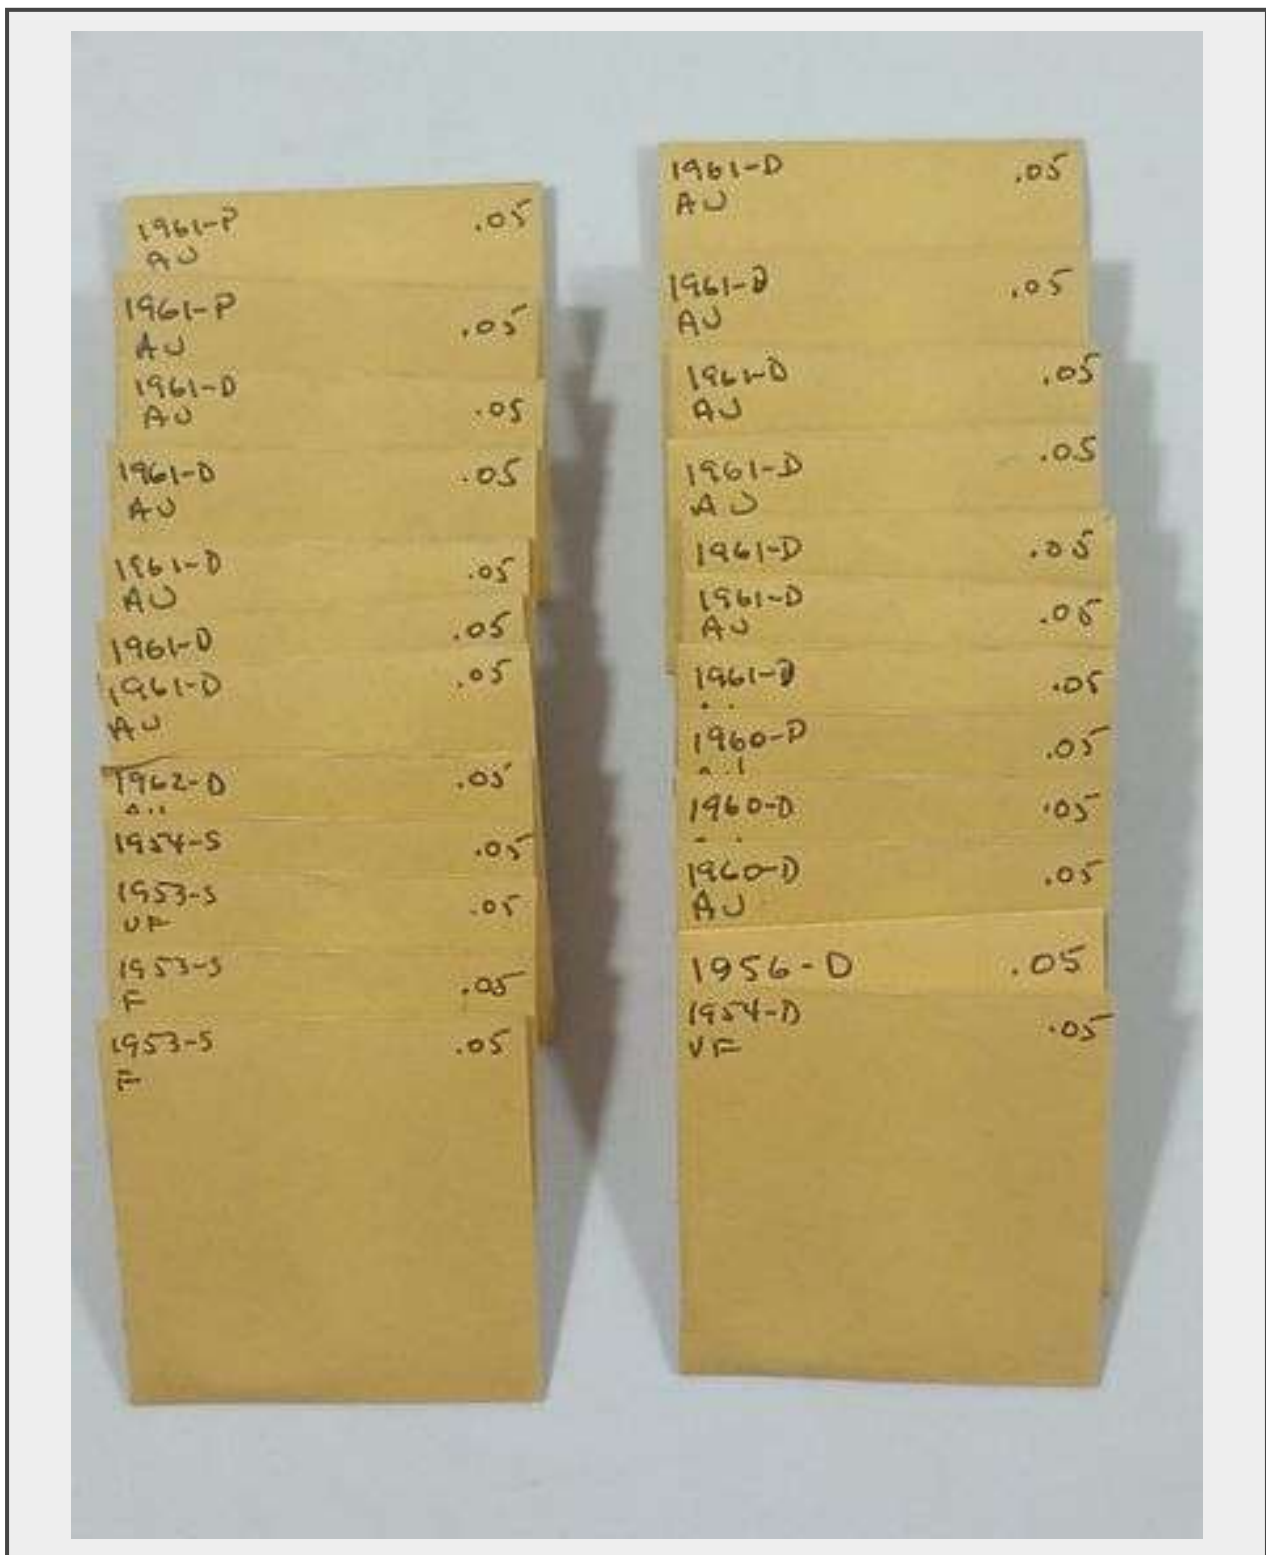 1961-P .05
AU
1961-P .05
AU
1961-D .05
AU
1961-D .05
AU
1961-D .05
AU
1961-D .05
1961-D .05
AU
1962-D .05
1954-S .05
1953-S .05
VF
1953-S .05
F
1953-S .05
F
1961-D .05
AU
1961-D .05
AU
1961-D .05
AU
1961-D .05
AU
1961-D .05
1961-D .05
AU
1961-D .05
1960-P .05
1960-D .05
1960-D .05
AU
1956-D .05
1954-D .05
VF